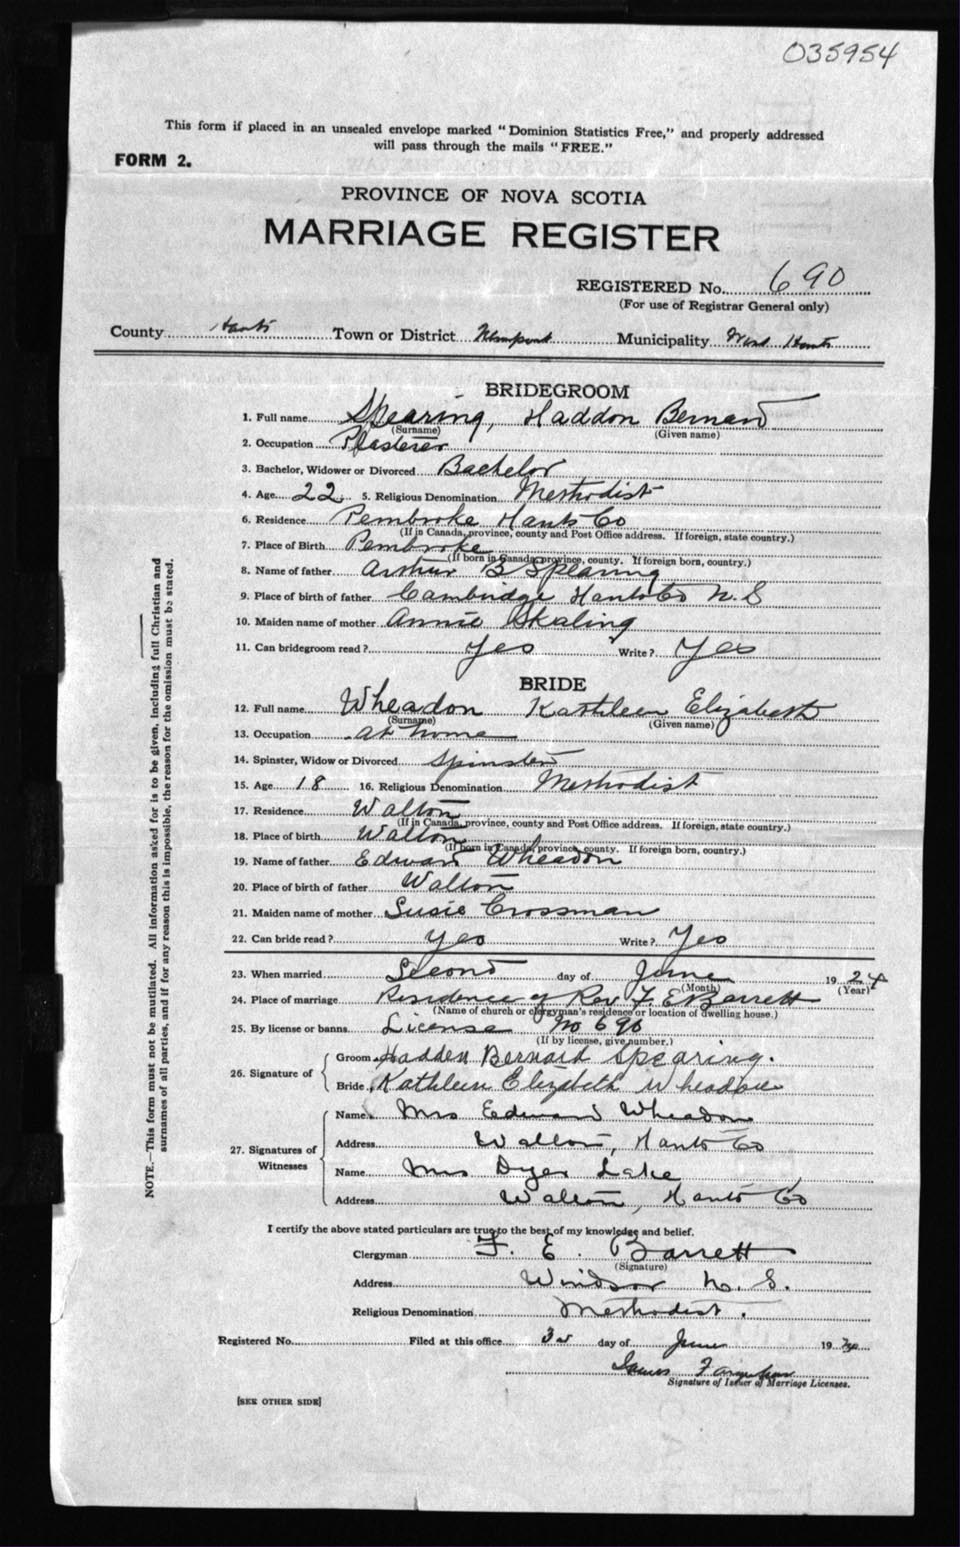 035954
This form if placed in an unsealed envelope marked "Dominion Statistics Free," and properly addressed
will pass through the mails "FREE."
FORM 2.
PROVINCE OF NOVA SCOTIA
MARRIAGE REGISTER
REGISTERED No. 690
(For use of Registrar General only)
County Hants Town or District Municipality West Hants
BRIDEGROOM
1. Full name Spearing, Haddon Bernard
(Surname) (Given name)
2. Occupation Plasterer
3. Bachelor, Widower or Divorced Bachelor
4. Age 22 5. Religious Denomination Methodist
6. Residence Pembroke Hants Co
(If in Canada, province, county and Post Office address. If foreign, state country.)
7. Place of Birth Pembroke
(If born in Canada, province, county. If foreign born, country.)
8. Name of father Arthur B Spearing
9. Place of birth of father Cambridge Hants Co N.S
10. Maiden name of mother Annie Skaling
11. Can bridegroom read? Yes Write? Yes
BRIDE
12. Full name Wheadon Kathleen Elizabeth
(Surname) (Given name)
13. Occupation at home
14. Spinster, Widow or Divorced Spinster
15. Age 18 16. Religious Denomination Methodist
17. Residence Walton
(If in Canada, province, county and Post Office address. If foreign, state country.)
18. Place of birth Walton
(If born in Canada, province, county. If foreign born, country.)
19. Name of father Edward Wheadon
20. Place of birth of father Walton
21. Maiden name of mother Susie Crossman
22. Can bride read? Yes Write? Yes
23. When married Second day of June 1924
(Month) (Year)
24. Place of marriage Residence of Rev F. E. Barrett
(Name of church or clergyman's residence or location of dwelling house.)
25. By license or banns License No 690
(If by license, give number.)
26. Signature of
Groom Hadden Bernard Spearing.
Bride Kathleen Elizabeth Wheadon
27. Signatures of Witnesses
Name Mrs Edward Wheadon
Address Walton, Hants Co
Name Mrs Dyer Lake
Address Walton, Hants Co
I certify the above stated particulars are true to the best of my knowledge and belief.
Clergyman F. E. Barrett
(Signature)
Address Windsor N. S.
Religious Denomination Methodist.
Registered No. Filed at this office 3rd day of June 19
James
Signature of Issuer of Marriage Licenses.
[SEE OTHER SIDE]
NOTE.—This form must not be mutilated. All information asked for is to be given, including full Christian and
surnames of all parties, and if for any reason this is impossible, the reason for the omission must be stated.